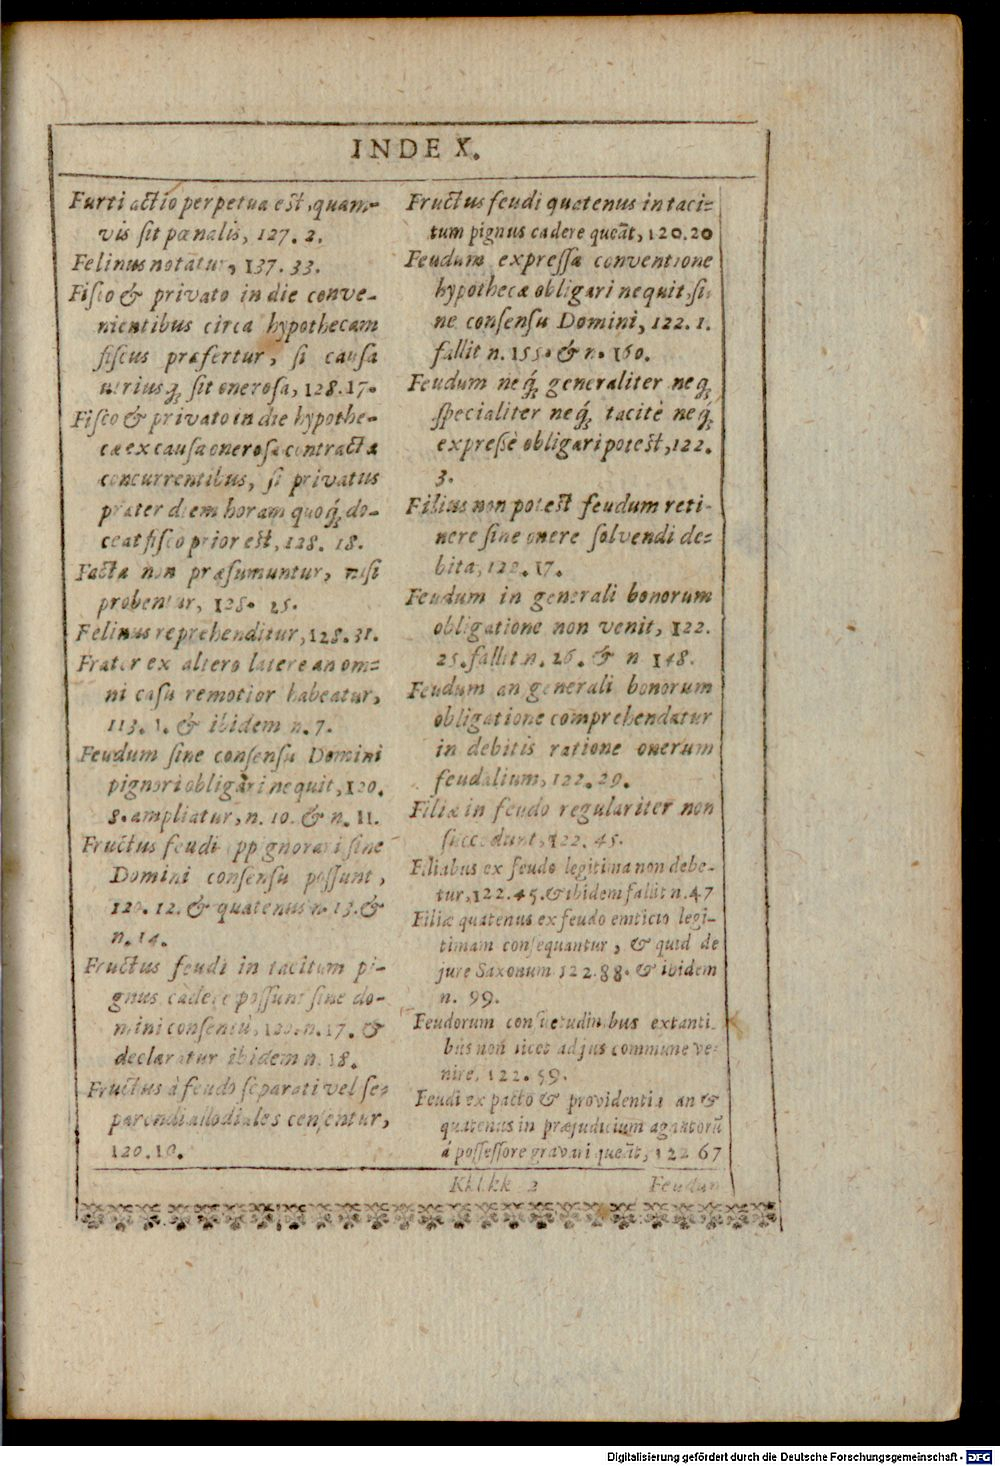 INDEX.
Furti actio perpetua est, quam-
vis sit pœnalis, 127. 2.
Felinus notatur, 137. 33.
Fisco & privato in die conve-
nientibus circa hypothecam
fiscus præfertur, si causa
utriusq́; sit onerosa, 128. 17.
Fisco & privato in die hypothe-
cæ ex causa onerosa contractæ
concurrentibus, si privatus
præter diem horam quoq́; do-
ceat fisco prior est, 128. 18.
Facta non præsumuntur, nisi
probentur, 128. 25.
Felinus reprehenditur, 128. 31.
Frater ex altero latere an om-
ni casu remotior habeatur,
113. 1. & ibidem n. 7.
Feudum sine consensu Domini
pignori obligari nequit, 120.
8. ampliatur, n. 10. & n. 11.
Fructus feudi oppignorari sine
Domini consensu possunt,
120. 12. & quatenus n. 13. &
n. 14.
Fructus feudi in tacitum pi-
gnus cadere possunt sine do-
mini consensu, 120. n. 17. &
declaratur ibidem n. 18.
Fructus à feudo separati vel se-
parandi allodiales censentur,
120. 19.
Fructus feudi quatenus in taci-
tum pignus cadere queãt, 120. 20
Feudum expressa conventione
hypothecæ obligari nequit, si-
ne consensu Domini, 122. 1.
fallit n. 155. & n. 160.
Feudum neq́; generaliter neq́;
specialiter neq́; tacitè neq́;
expressè obligari potest, 122.
3.
Filius non potest feudum reti-
nere sine onere solvendi de-
bita, 122. 17.
Feudum in generali bonorum
obligatione non venit, 122.
25. fallit n. 26. & n 148.
Feudum an generali bonorum
obligatione comprehendatur
in debitis ratione onerum
feudalium, 122. 29.
Filiæ in feudo regulariter non
succedunt, 122. 45.
Filiabus ex feudo legitima non debe-
tur, 122. 45. & ibidem fallit n. 47
Filiæ quatenus ex feudo emticio legi-
timam consequantur, & quid de
jure Saxonum 122. 88. & ibidem
n. 99.
Feudorum consuetudinibus extanti-
bus non licet ad jus commune ve-
nire, 122. 59.
Feudi ex pacto & providentia an &
quatenus in præjudicium agnatorũ
á possessore gravari queãt, 122 67
Kkkkk 2 Feudum
Digitalisierung gefördert durch die Deutsche Forschungsgemeinschaft - DFG